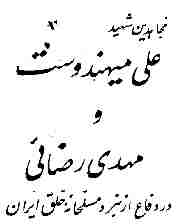 مجاهدین شهید
علی میهندوست
و
مهدی رضائی
در دفاع از نبرد مسلحانه خلق ایران